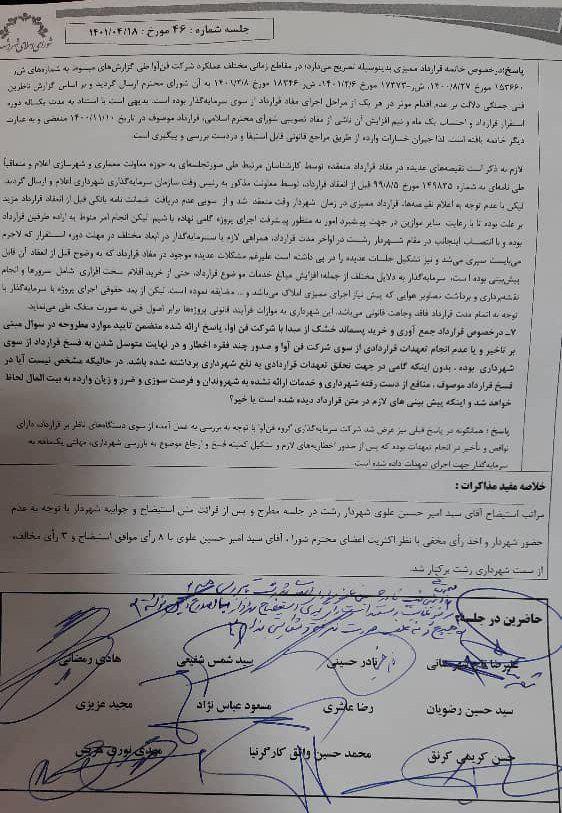 جلسه شماره : ۴۶ مورخ : ۱۴۰۱/۰۴/۱۸
شورای اسلامی شهر رشت
پاسخ:درخصوص خاتمه قرارداد ممیزی بدینوسیله تصریح می‌دارد؛ در مقاطع زمانی مختلف عملکرد شرکت فن‌آوا طی گزارش‌های مبسوط به شماره‌های ش‌ر
۱۵۳۶۶۰ مورخ ۱۴۰۰/۸/۲۷، ش‌ر ۱۷۳۷۳ مورخ ۱۴۰۱/۲/۶، ش‌ر ۱۸۳۴۶ مورخ ۱۴۰۱/۲/۸ به آن شورای محترم ارسال گردید و بر اساس گزارش ناظرین
فنی جملگی دلالت بر عدم اقدام موثر در هر یک از مراحل اجرای مفاد قرارداد از سوی سرمایه‌گذار بوده است. بدیهی است با استناد به مدت یکساله دوره
استقرار قرارداد و احتساب یک ماه و نیم افزایش آن ناشی از مفاد تصویبی شورای محترم اسلامی، قرارداد موصوف در تاریخ ۱۴۰۰/۱۱/۱۰ منقضی و به عبارت
دیگر خاتمه یافته است. لذا جبران خسارات وارده از طریق مراجع قانونی قابل استیفا و دردست بررسی و پیگیری است.
لازم به ذکر است نقیصه‌های عدیده در مفاد قرارداد منعقده توسط کارشناسان مرتبط طی صورتجلسه‌ای به حوزه معاونت معماری و شهرسازی اعلام و متعاقباً
طی نامه‌ای به شماره ۱۴۹۸۳۵ مورخ ۹۹/۸/۵ قبل از انعقاد قرارداد، توسط معاونت مذکور به رئیس وقت سازمان سرمایه‌گذاری شهرداری اعلام و ارسال گردید.
لیکن با عدم توجه به اعلام نقیصه‌ها، قرارداد ممیزی در زمان شهردار وقت منعقد شد و از سویی عدم دریافت ضمانت نامه بانکی قبل از انعقاد قرارداد مزید
بر علت بوده تا با رعایت سایر موازین در جهت پیشبرد امور به منظور پیشرفت اجرای پروژه گامی نهاده با شیم لیکن انجام امر منوط به اراده طرفین قرارداد
بوده و با انتصاب اینجانب در مقام شهردار رشت در اواخر مدت قرارداد، همراهی لازم با سرمایه‌گذار در ابعاد مختلف در مهلت دوره استقرار که لاجرم
می‌بایست سپری می‌شد و نیز تشکیل جلسات عدیده را در پی داشته است علیرغم مشکلات عدیده موجود در مفاد قرارداد که به وضوح قبل از انعقاد آن قابل
پیش‌بینی بوده است، سرمایه‌گذار به دلایل مختلف از جمله؛ افزایش مبالغ خدمات موضوع قرارداد، حتی از خرید اقلام سخت افزاری شامل سرورها و انجام
نقشه‌برداری و برداشت تصاویر هوایی که پیش نیاز اجرای ممیزی املاک می‌باشد و ... مضایقه نموده است. لیکن از بعد حقوقی اجرای پروژه با سرمایه‌گذار با
توجه به اتمام مدت قرارداد فاقد وجاهت قانونی می‌باشد. این شهرداری به موازات فرآیند قانونی پروژه‌ها برابر اصول فنی به صورت منفک طی می‌نماید.
۷- درخصوص قرارداد جمع آوری و خرید پسماند خشک از مبدا با شرکت فن اوا، پاسخ ارائه شده متضمن تایید موارد مطروحه در سوال مبنی
بر تاخیر و یا عدم انجام تعهدات قراردادی از سوی شرکت فن آوا و صدور چند فقره اخطار و در نهایت متوسل شدن به فسخ قرارداد از سوی
شهرداری بوده . بدون اینکه گامی در جهت تحقق تعهدات قراردادی به نفع شهرداری برداشته شده باشد. در حالیکه مشخص نیست آیا در
فسخ قرارداد موصوف ، منافع از دست رفته شهرداری و خدمات ارائه نشده به شهروندان و فرصت سوزی و ضرر و زیان وارده به بیت المال لحاظ
خواهد شد و اینکه پیش بینی های لازم در متن قرارداد دیده شده است یا خیر؟
پاسخ : همانگونه در پاسخ قبلی نیز عرض شد شرکت سرمایه‌گذاری گروه فن‌آوا با توجه به بررسی به عمل آمده از سوی دستگاه‌های ناظر بر قرارداد، دارای
نواقص و تأخیر در انجام تعهدات بوده که پس از صدور اخطاریه‌های لازم و تشکیل کمیته فسخ و ارجاع موضوع به بازرسی شهرداری، مهلتی یک‌ماهه به
سرمایه‌گذار جهت اجرای تعهدات داده شده است.
خلاصه مفید مذاکرات :
مراتب استیضاح آقای سید امیر حسین علوی شهردار رشت در جلسه مطرح و پس از قرائت متن استیضاح و جوابیه شهردار با توجه به عدم
حضور شهردار و اخذ رأی مخفی با نظر اکثریت اعضای محترم شورا ، آقای سید امیر حسین علوی با ۸ رأی موافق استیضاح و ۳ رأی مخالف،
از سمت شهرداری رشت برکنار شد.
حاضرین در جلسه:
علیرضا نادر حسینی سید شمس شفیعی هادی رمضانی
سید حسین رضویان رضا عاشری مسعود عباس نژاد مجید عزیزی
حسن کریمی کرنق محمد حسین واثق کارگرنیا مهدی نوری